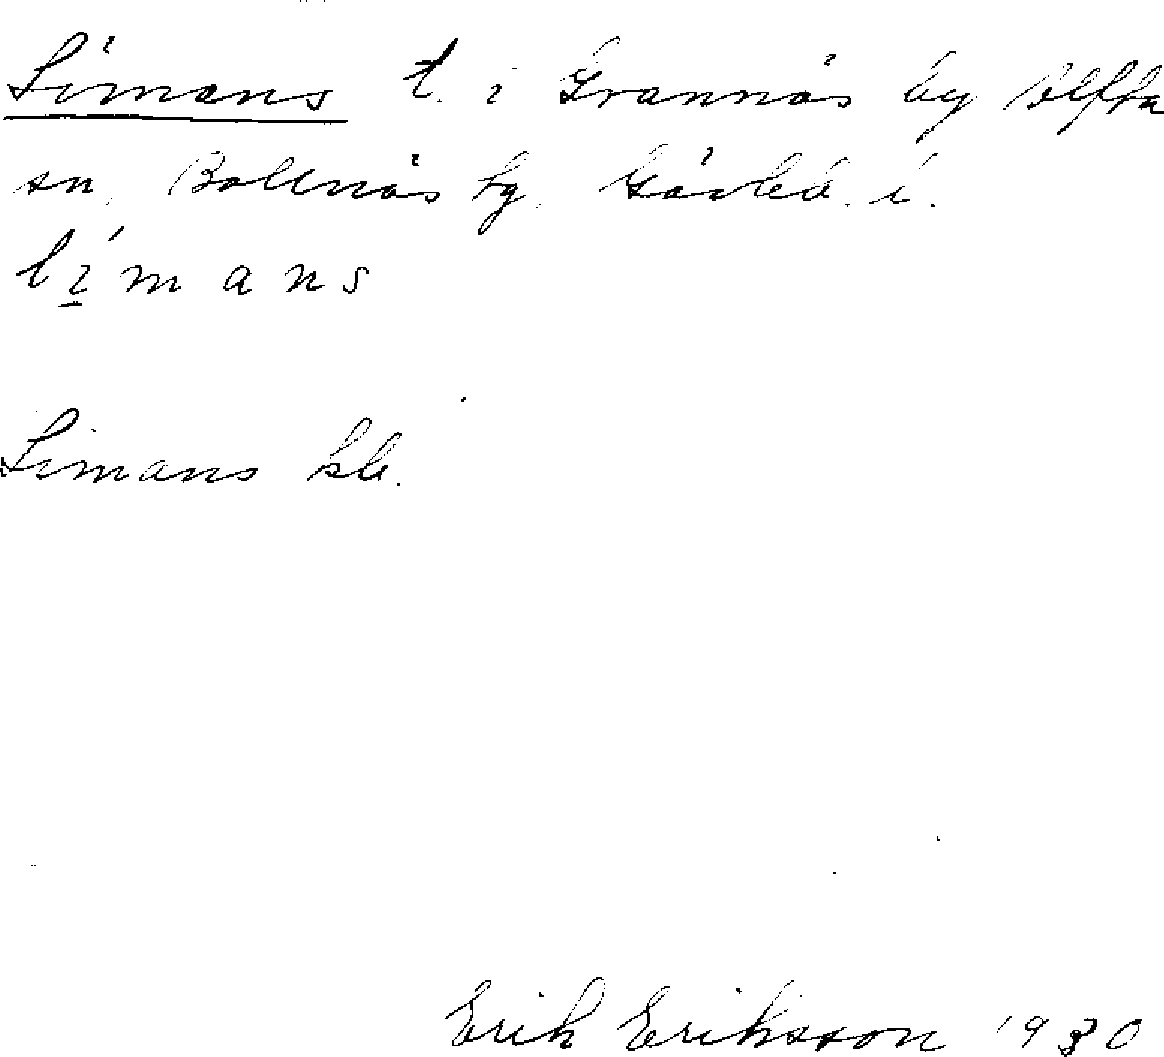 Limans t. i Grannäs by Alfta
sn, Bollnäs tg. Gävleb. l.
límans
Limans kb.
Erik Eriksson 1930